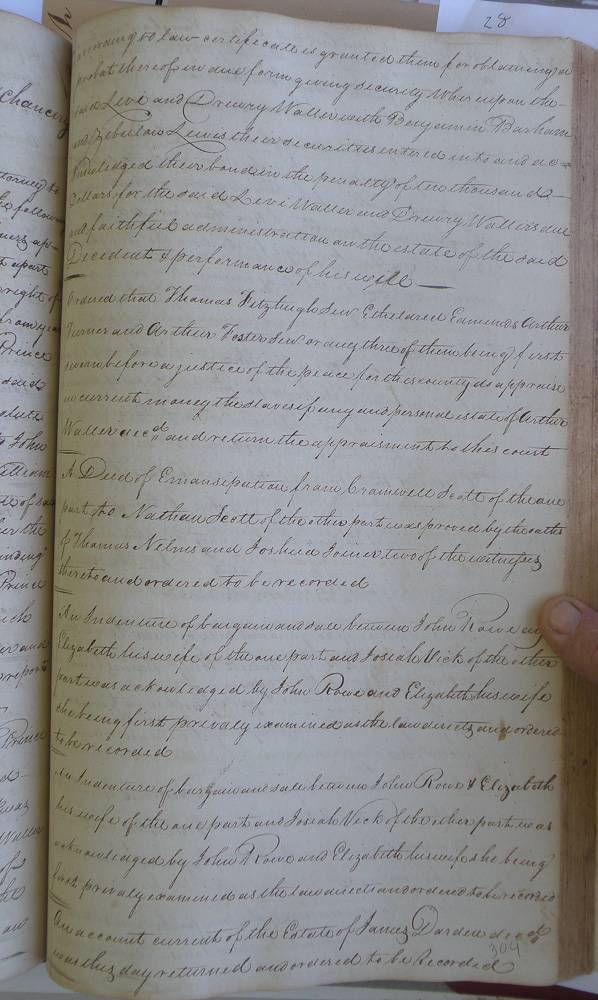 28
according to law certificate is granted them for obtaining a
probat thereof in due form giving security Whereupon the
said Levi and Drewry Waller with Benjamin Barham
and Zebulon Lewis their securities entered into and ac=
knowledged their bond in the penalty of ten thousand
dollars for the said Levi Waller and Drewry Wallers due
and faithful administration on the estate of the said
Decedent & performance of his will
Ordered that Thomas Fitzhugh Senr Ethelared Edmunds Arthur
Turner and Arthur Foster Senr or any three of them being first
sworn before a justice of the peace for this county do appraise
in current money the slaves if any and personal estate of Arthur
Waller decd and return the appraisment to this court
A Deed of Emansipation from Cromwell Scott of the one
part to Nathan Scott of the other part was proved by the oaths
of Thomas Nelms and Joshua Joiner two of the witnesses
thereto and ordered to be recorded
An Indenture of bargain and sale between John Rowe and
Elizabeth his wife of the one part and Josiah Vick of the other
part was acknowledged by John Rowe and Elizabeth his wife
she being first privaly examined as the law directs and ordered
to be recorded
An Indenture of bargain and sale between John Rowe & Elizabeth
his wife of the one part and Josiah Vick of the other part was
acknowledged by John Rowe and Elizabeth his wife she being
first privaly examined as the law direct and ordered to be recorded
An account current of the Estate of James Darden decd
was this day returned and ordered to be Recorded
304